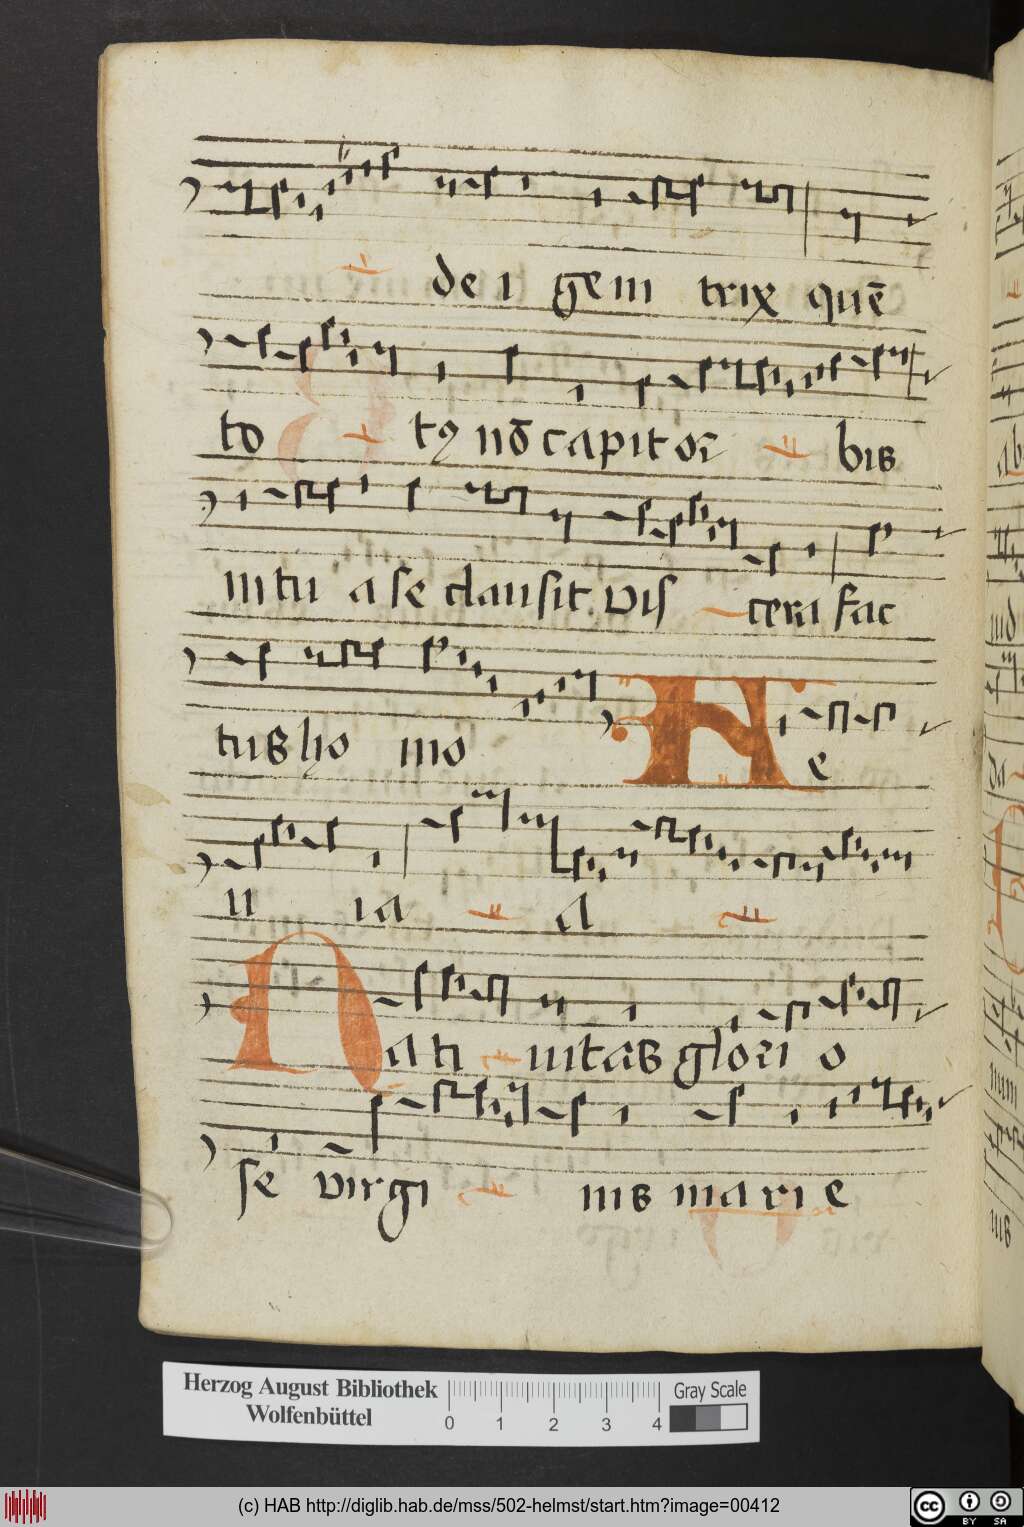 de i gem trix quē
to tꝯ nō capit or bis
in tu a se clausit vis cera fac
tus ho mo
A e
u ia A
Nati uitas glori o
se v̄irgi nis mari e
Herzog August Bibliothek
Wolfenbüttel
0 1 2 3 4
Gray Scale
(c) HAB http://diglib.hab.de/mss/502-helmst/start.htm?image=00412
cc BY SA